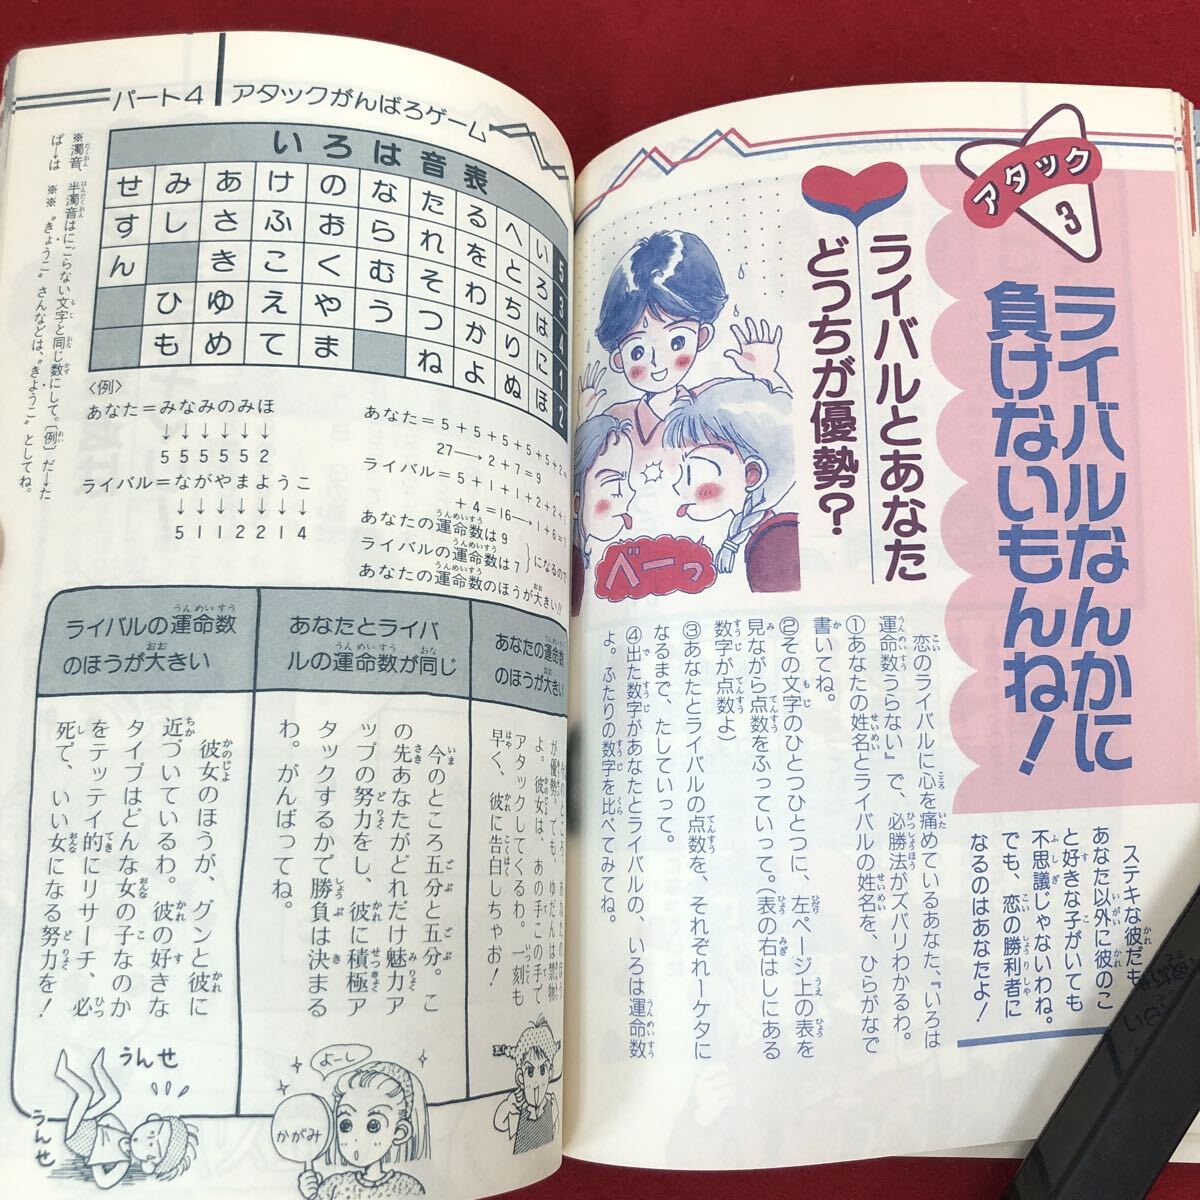 アタック
3
ライバルなんかに
負けないもんね!
ステキな彼だも
あなた以外に彼のこ
と好きな子がいても
不思議じゃないわね。
でも、恋の勝利者に
なるのはあなたよ!
ライバルとあなた
どっちが優勢?
べーっ
恋のライバルに心を痛めているあなた、『いろは
運命数うらない』で、必勝法がズバリわかるわ。
①あなたの姓名とライバルの姓名を、ひらがなで
書いてね。
②その文字のひとつひとつに、左ページ上の表を
見ながら点数をふっていって。(表の右はしにある
数字が点数よ)
③あなたとライバルの点数を、それぞれ一ケタに
なるまで、たしていって。
④出た数字があなたとライバルの、いろは運命数
よ。ふたりの数字を比べてみてね。
パート4 アタックがんばろゲーム
いろは音表
5 3 4 1 2
いろはにほ
へとちりぬ
るをわかよ
たれそつね
ならむう
のおくやま
けふこえて
あさきゆめ
みし ひも
せすん
※濁音、半濁音はにごらない文字と同じ数にして。〔例〕だ→た
ば→は ※※“きょうこ”さんなどは、“きようこ”としてね。
〈例〉
あなた=みなみのみほ
↓↓↓↓↓↓
5 5 5 5 5 2
ライバル=ながやまようこ
↓↓↓↓↓↓↓
5 1 1 2 2 1 4
あなた=5+5+5+5+5+2=
27→2+7=9
ライバル=5+1+1+2+2+1
+4=16→1+6=7
あなたの運命数は9
ライバルの運命数は7
}になるので
あなたの運命数のほうが大きい!!
あなたの運命数
のほうが大きい
が優勢。でも、ゆだんは禁物
よ。彼女は、あの手この手で
アタックしてくるわ。一刻も
早く、彼に告白しちゃお!
あなたとライバ
ルの運命数が同じ
今のところ五分と五分。こ
の先あなたがどれだけ魅力ア
ップの努力をし、彼に積極ア
タックするかで勝負は決まる
わ。がんばってね。
よーし
かがみ
ライバルの運命数
のほうが大きい
彼女のほうが、グンと彼に
近づいているわ。彼の好きな
タイプはどんな女の子なのか
をテッテイ的にリサーチ、必
死で、いい女になる努力を!
うんせ
うんせ